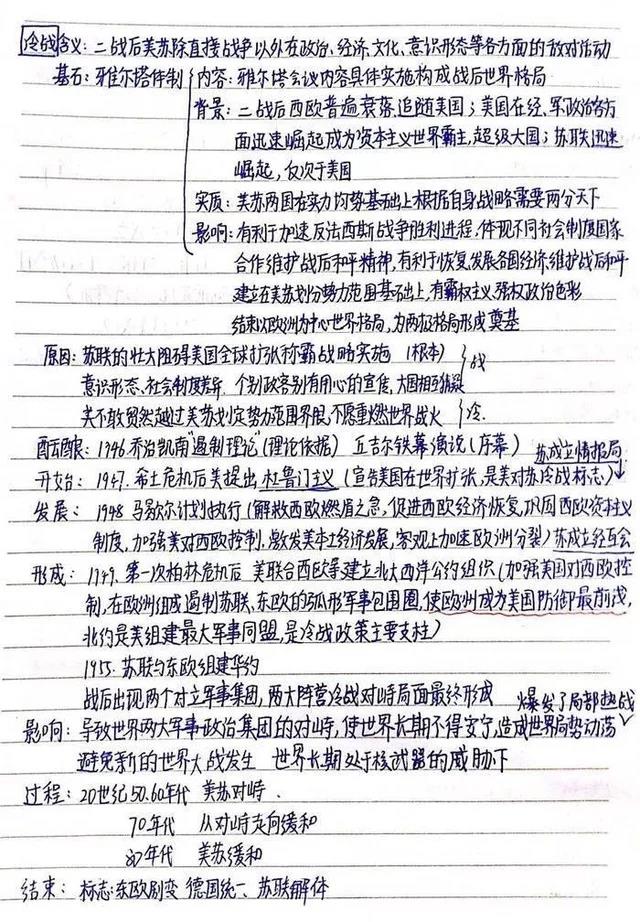 冷战含义：二战后美苏除直接战争以外在政治、经济、文化、意识形态等各方面的敌对活动
基石：雅尔塔体制 内容：雅尔塔会议内容具体实施构成战后世界格局
背景：二战后西欧普遍衰落，追随美国；美国在经、军政治各方
面迅速崛起成为资本主义世界霸主，超级大国；苏联迅速
崛起，仅次于美国
实质：美苏两国在实力均势基础上根据自身战略需要两分天下
影响：有利于加速反法西斯战争胜利进程，体现不同社会制度国家
合作维护战后和平精神，有利于恢复、发展各国经济，维护战后和平
建立在美苏划分势力范围基础上，有霸权主义、强权政治色彩
结束以欧洲为中心世界格局，为两极格局形成奠基
原因：苏联的壮大阻碍美国全球扩张称霸战略实施（根本） 战
意识形态、社会制度差异，个别政客别有用心的宣传，大国相互猜疑
美不敢贸然越过美苏划定势力范围界限，不愿重燃世界战火 冷
酝酿：1946乔治凯南"遏制理论"（理论依据） 丘吉尔铁幕演说（序幕） 苏成立情报局
开始：1947.希土危机后美提出杜鲁门主义（宣告美国在世界扩张，是美对苏冷战标志）
发展：1948 马歇尔计划执行（解救西欧燃眉之急，促进西欧经济恢复，巩固西欧资本主义
制度，加强美对西欧控制，激发美本土经济发展，客观上加速欧洲分裂）苏成立经互会
形成：1949.第一次柏林危机后 美联合西欧等建立北大西洋公约组织（加强美国对西欧控
制，在欧洲组成遏制苏联、东欧的弧形军事包围圈，使欧洲成为美国防御最前线，
北约是美组建最大军事同盟，是冷战政策主要支柱）
1955.苏联与东欧组建华约
战后出现两个对立军事集团，两大阵营冷战对峙局面最终形成 爆发了局部热战
影响：导致世界两大军事政治集团的对峙，使世界长期不得安宁，造成世界局势动荡
避免新的世界大战发生 世界长期处于核武器的威胁下
过程：20世纪50.60年代 美苏对峙．
70年代 从对峙走向缓和
80年代 美苏缓和
结束：标志：东欧剧变 德国统一、苏联解体